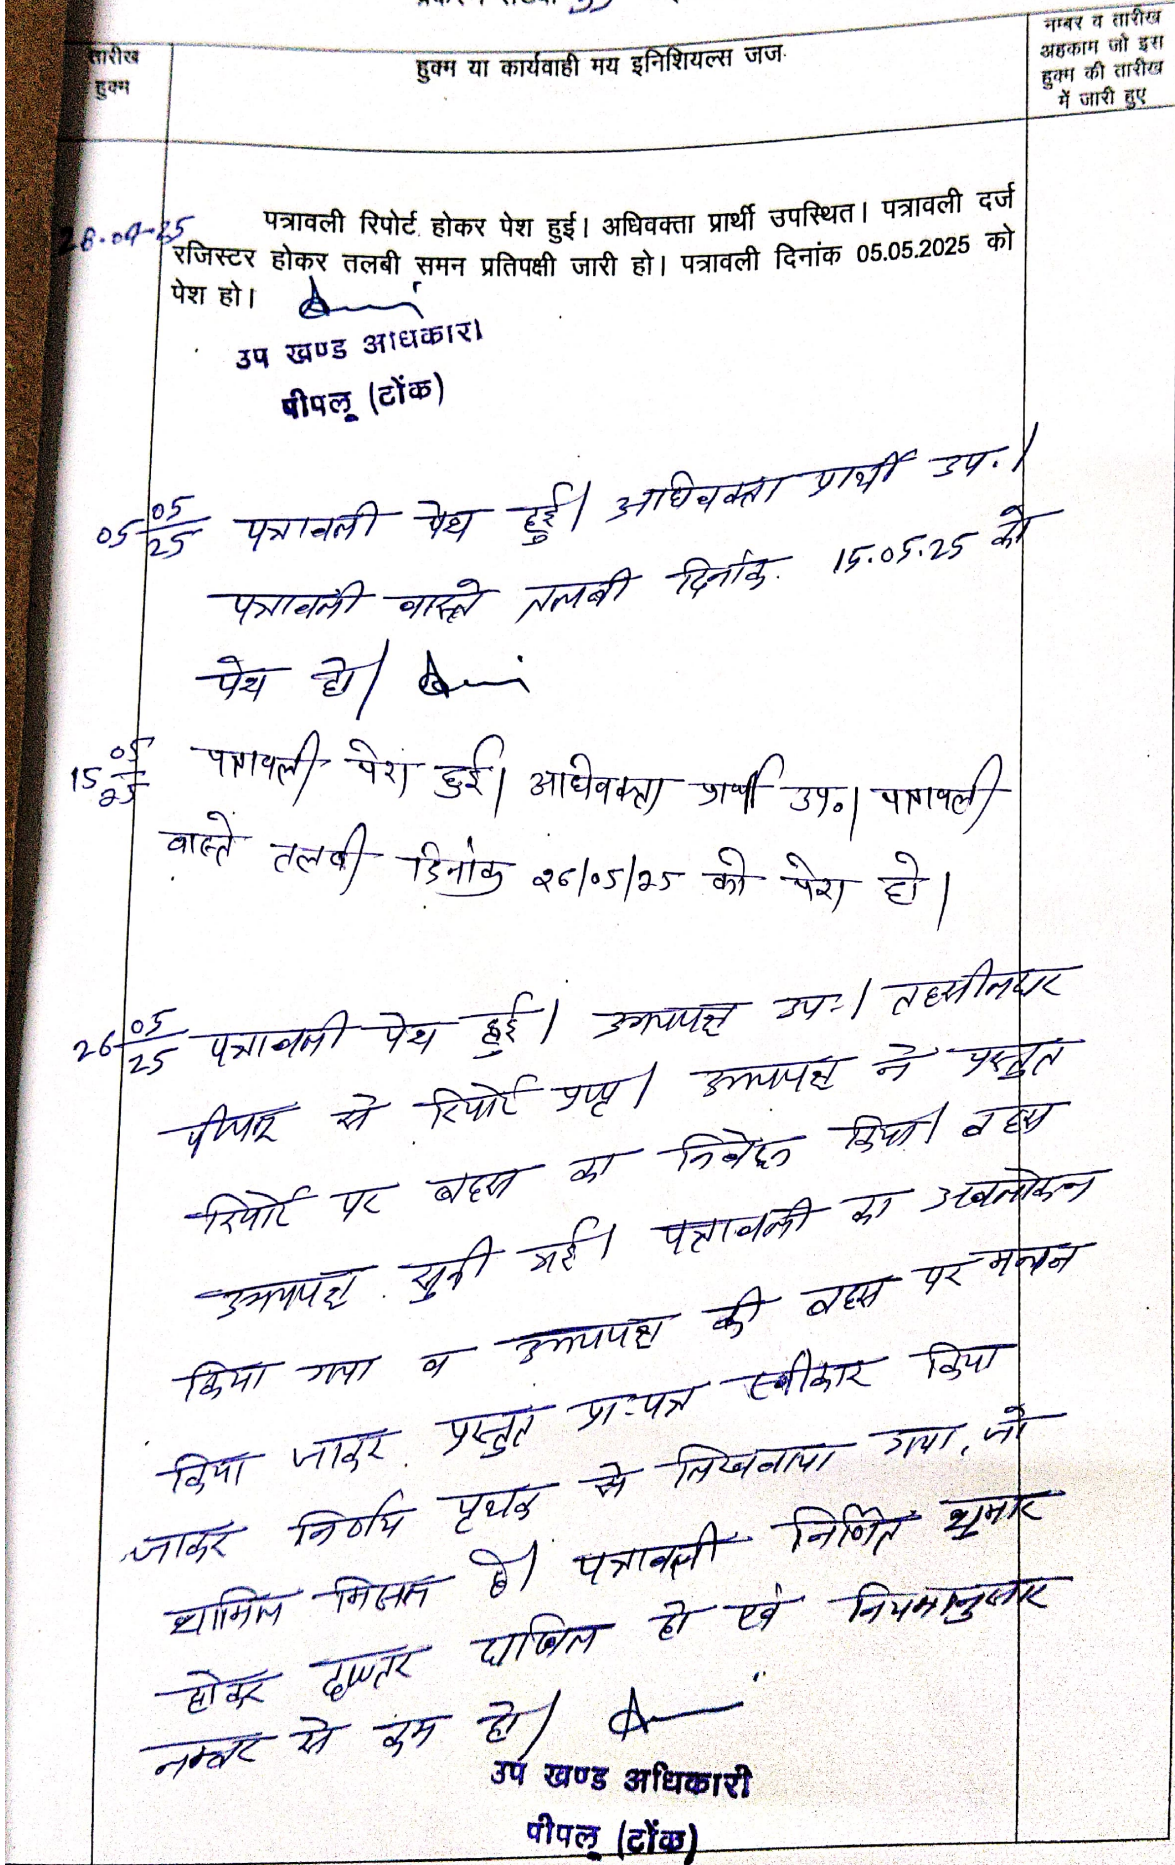 तारीख
हुक्म
हुक्म या कार्यवाही मय इनिशियल्स जज
नम्बर व तारीख
अहकाम जो इस
हुक्म की तारीख
में जारी हुए
पत्रावली रिपोर्ट होकर पेश हुई। अधिवक्ता प्रार्थी उपस्थित। पत्रावली दर्ज
रजिस्टर होकर तलबी समन प्रतिपक्षी जारी हो। पत्रावली दिनांक 05.05.2025 को
पेश हो।
उप खण्ड अधिकारी
पीपलू (टोंक)
05/05/25 पत्रावली पेश हुई। अधिवक्ता प्रार्थी उप.।
पत्रावली वास्ते तलबी दिनांक 15.05.25 को
पेश हो।
15/05/25 पत्रावली पेश हुई। अधिवक्ता प्रार्थी उप०। पत्रावली
वास्ते तलबी दिनांक 26/05/25 को पेश हो।
26/05/25 पत्रावली पेश हुई। उभयपक्ष उप.। तहसीलदार
पीपलू से रिपोर्ट प्राप्त। उभयपक्ष ने प्रस्तुत
रिपोर्ट पर बहस का निवेदन किया। बहस
उभयपक्ष सुनी गई। पत्रावली का अवलोकन
किया गया व उभयपक्ष की बहस पर मनन
किया जाकर प्रस्तुत प्रा.पत्र स्वीकार किया
जाकर निर्णय पृथक से लिखवाया गया, जो
शामिल मिसल है। पत्रावली निर्णित शुमार
होकर दफ्तर दाखिल हो एवं नियमानुसार
नम्बर से कम हो।
उप खण्ड अधिकारी
पीपलू (टोंक)